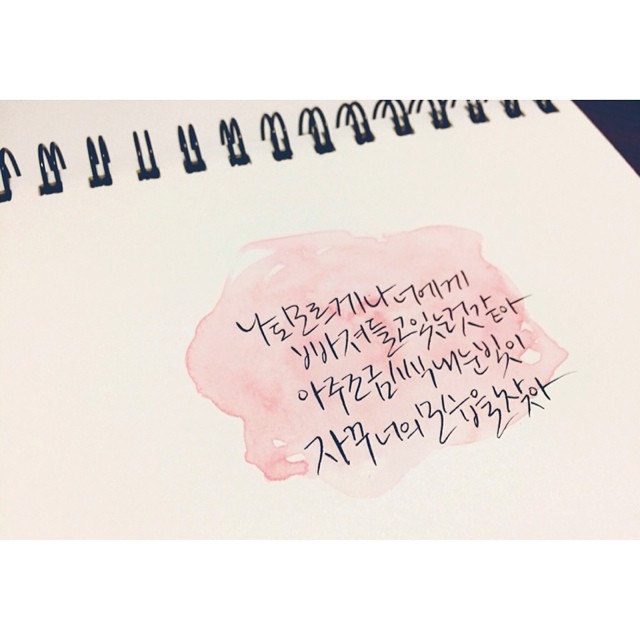 나도모르게나너에게
빠져들고있는것같아
아주조금씩내눈빛이
자꾸너의모습을찾아